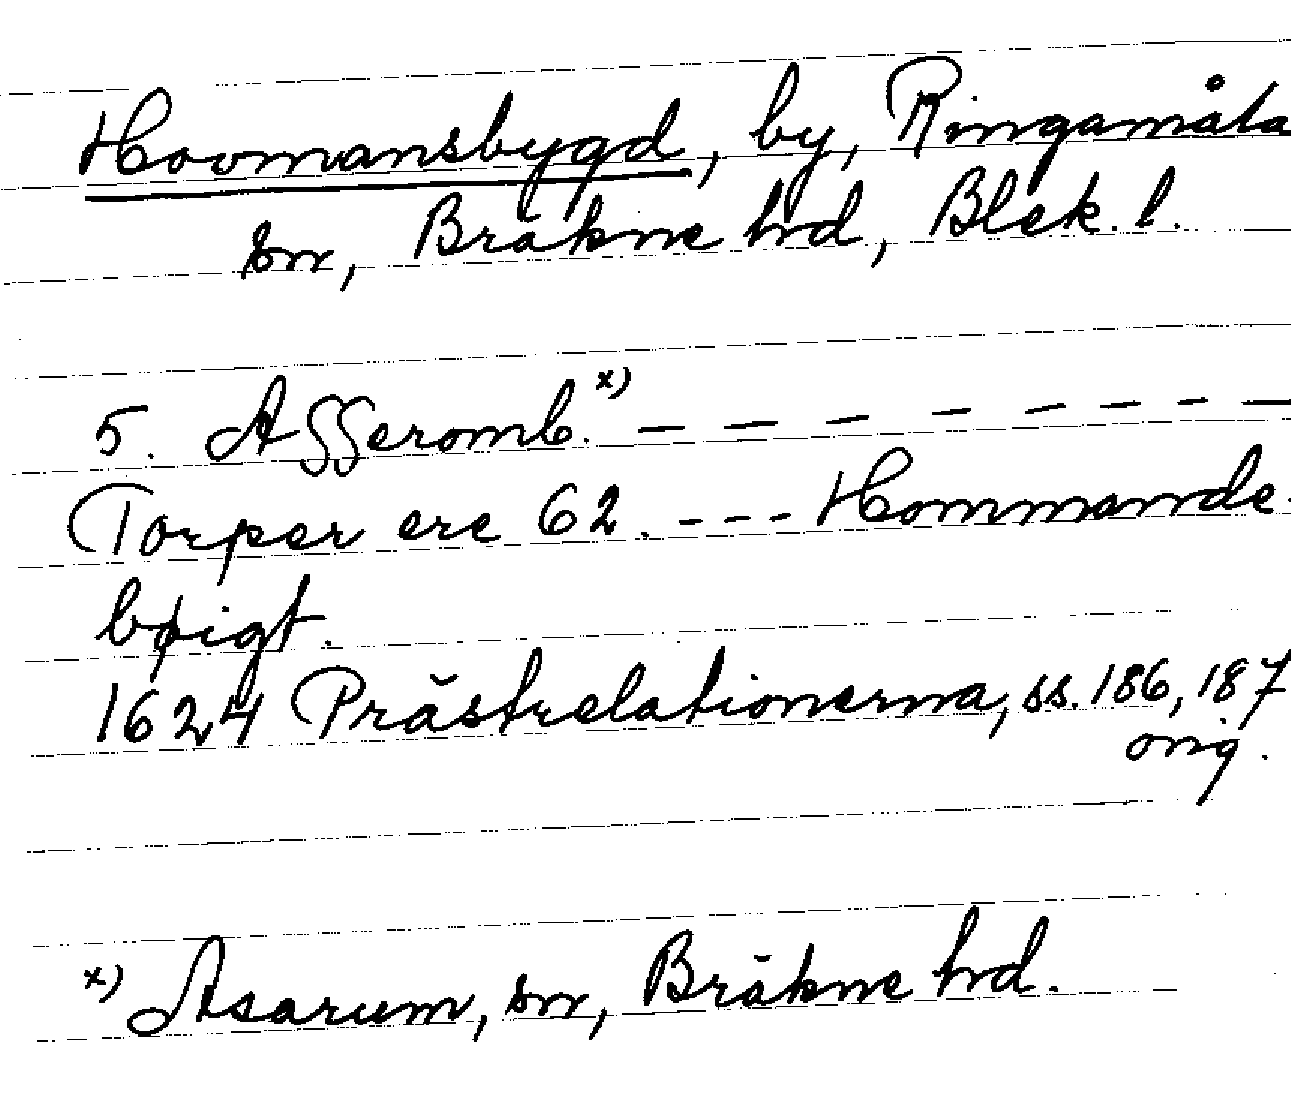 Hovmansbygd, by, Ringamåla
sn, Bräkne hrd, Blek. l.
5. Asseromb. x) — — — — — — — —
Torper ere 62. - - - Hommande
bøigt.
1624 Prästrelationerna, ss. 186, 187
orig.
x) Asarum, sn, Bräkne hrd.